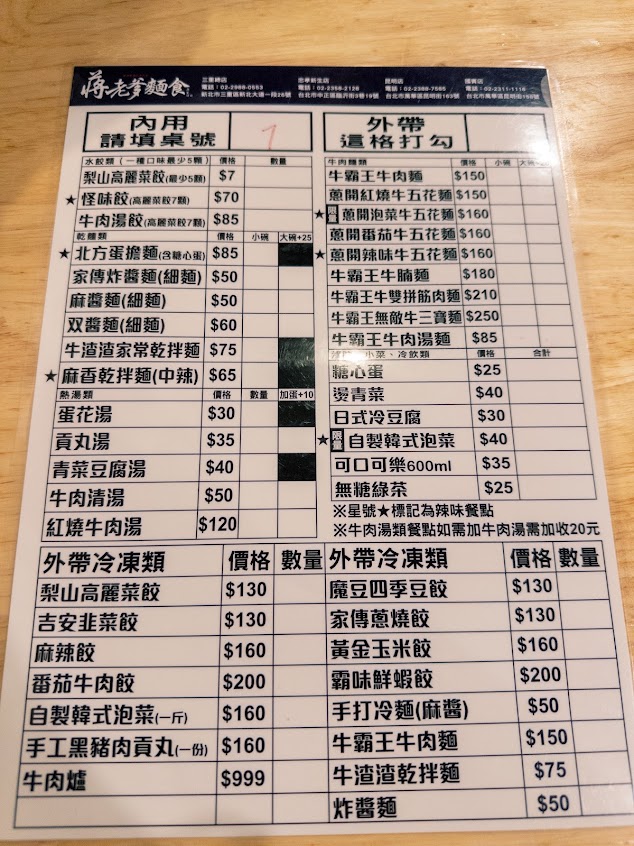 蔣老爹麵食
三重總店
電話：02-2988-0553
新北市三重區新北大道一段26號
忠孝新生店
電話：02-2358-2128
台北市中正區臨沂街3巷19號
昆明店
電話：02-2388-7565
台北市萬華區昆明街163號
電話：02-2311-1118
內用
請填桌號
7
外帶
這格打勾
水餃類（一種口味最少5顆） 價格 數量
梨山高麗菜餃(最少5顆) $7
★怪味餃(高麗菜餃7顆) $70
牛肉湯餃(高麗菜餃7顆) $85
乾麵類 價格 小碗 大碗+25
★北方蛋擔麵(含糖心蛋) $85
家傳炸醬麵(細麵) $50
麻醬麵(細麵) $50
双醬麵(細麵) $60
牛渣渣家常乾拌麵 $75
★麻香乾拌麵(中辣) $65
熱湯類 價格 數量 加蛋+10
蛋花湯 $30
貢丸湯 $35
青菜豆腐湯 $40
牛肉清湯 $50
紅燒牛肉湯 $120
牛肉麵類 價格 小碗 大碗
牛霸王牛肉麵 $150
蔥開紅燒牛五花麵 $150
★限量 蔥開泡菜牛五花麵 $160
蔥開番茄牛五花麵 $160
★蔥開辣味牛五花麵 $160
牛霸王牛腩麵 $180
牛霸王牛雙拼筋肉麵 $210
牛霸王無敵牛三寶麵 $250
牛霸王牛肉湯麵 $85
小菜、冷飲類 價格 合計
糖心蛋 $25
燙青菜 $40
日式冷豆腐 $30
★限量 自製韓式泡菜 $40
可口可樂600ml $35
無糖綠茶 $25
※星號★標記為辣味餐點
※牛肉湯類餐點如需加牛肉湯需加收20元
外帶冷凍類 價格 數量
梨山高麗菜餃 $130
吉安韭菜餃 $130
麻辣餃 $160
番茄牛肉餃 $200
自製韓式泡菜(一斤) $160
手工黑豬肉貢丸(一份) $160
牛肉爐 $999
外帶冷凍類 價格 數量
魔豆四季豆餃 $130
家傳蔥燒餃 $130
黃金玉米餃 $160
霸味鮮蝦餃 $200
手打冷麵(麻醬) $50
牛霸王牛肉麵 $150
牛渣渣乾拌麵 $75
炸醬麵 $50